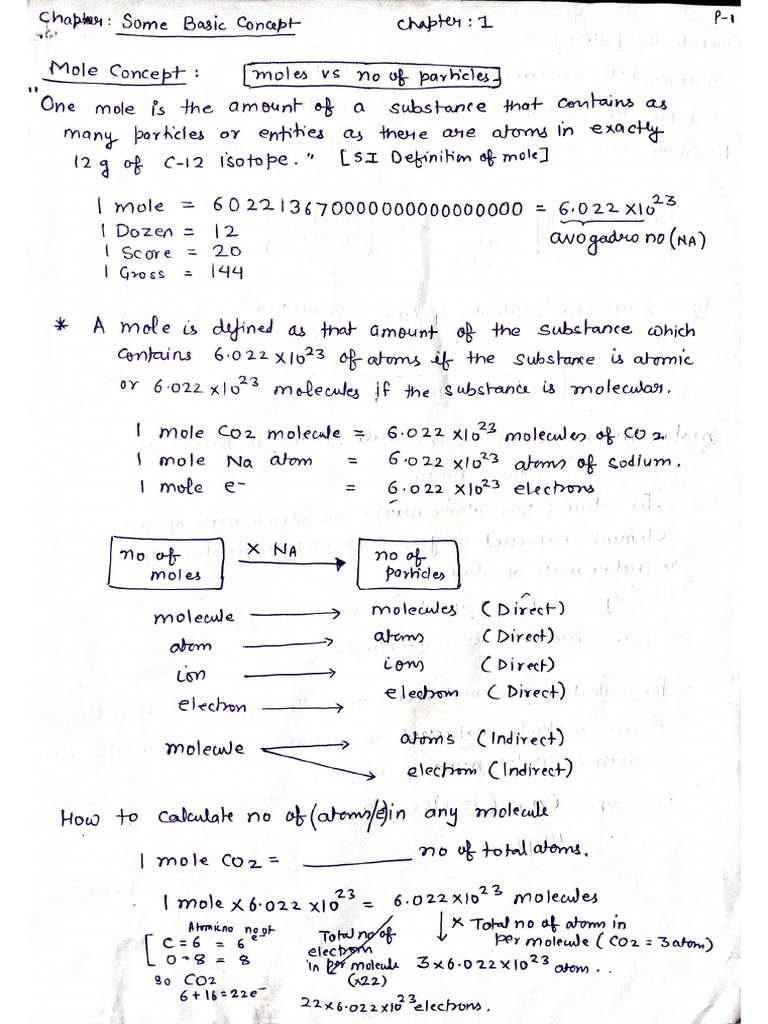 Chapter: Some Basic Concept Chapter: 1 P-1
Mole Concept: moles vs no of particles
"One mole is the amount of a substance that contains as
many particles or entities as there are atoms in exactly
12 g of C-12 isotope." [SI Definition of mole]
1 mole = 602213670000000000000000 = 6.022 x10²³
1 Dozen = 12 avogadro no (NA)
1 Score = 20
1 Gross = 144
* A mole is defined as that amount of the substance which
contains 6.022 x10²³ of atoms if the substance is atomic
or 6.022 x10²³ molecules if the substance is molecular.
1 mole CO2 molecule = 6.022 x10²³ molecules of CO2
1 mole Na atom = 6.022 x10²³ atoms of sodium.
1 mole e⁻ = 6.022 x10²³ electrons
no of moles x NA → no of particles
molecule → molecules (Direct)
atom → atoms (Direct)
ion → ions (Direct)
electron → electrom (Direct)
molecule → atoms (Indirect)
→ electrom (Indirect)
How to calculate no of (atoms/e) in any molecule
1 mole CO2 = ________ no of total atoms.
1 mole x 6.022 x10²³ = 6.022 x10²³ molecules
Atomic no no of e⁻
[ C = 6 = 6
O = 8 = 8
so CO2
6+16 = 22e⁻
Total no of
electron
in per molecule
(x22)
22 x 6.022 x10²³ electrons.
x Total no of atom in
per molecule (CO2 = 3 atom)
3 x 6.022 x10²³ atom..